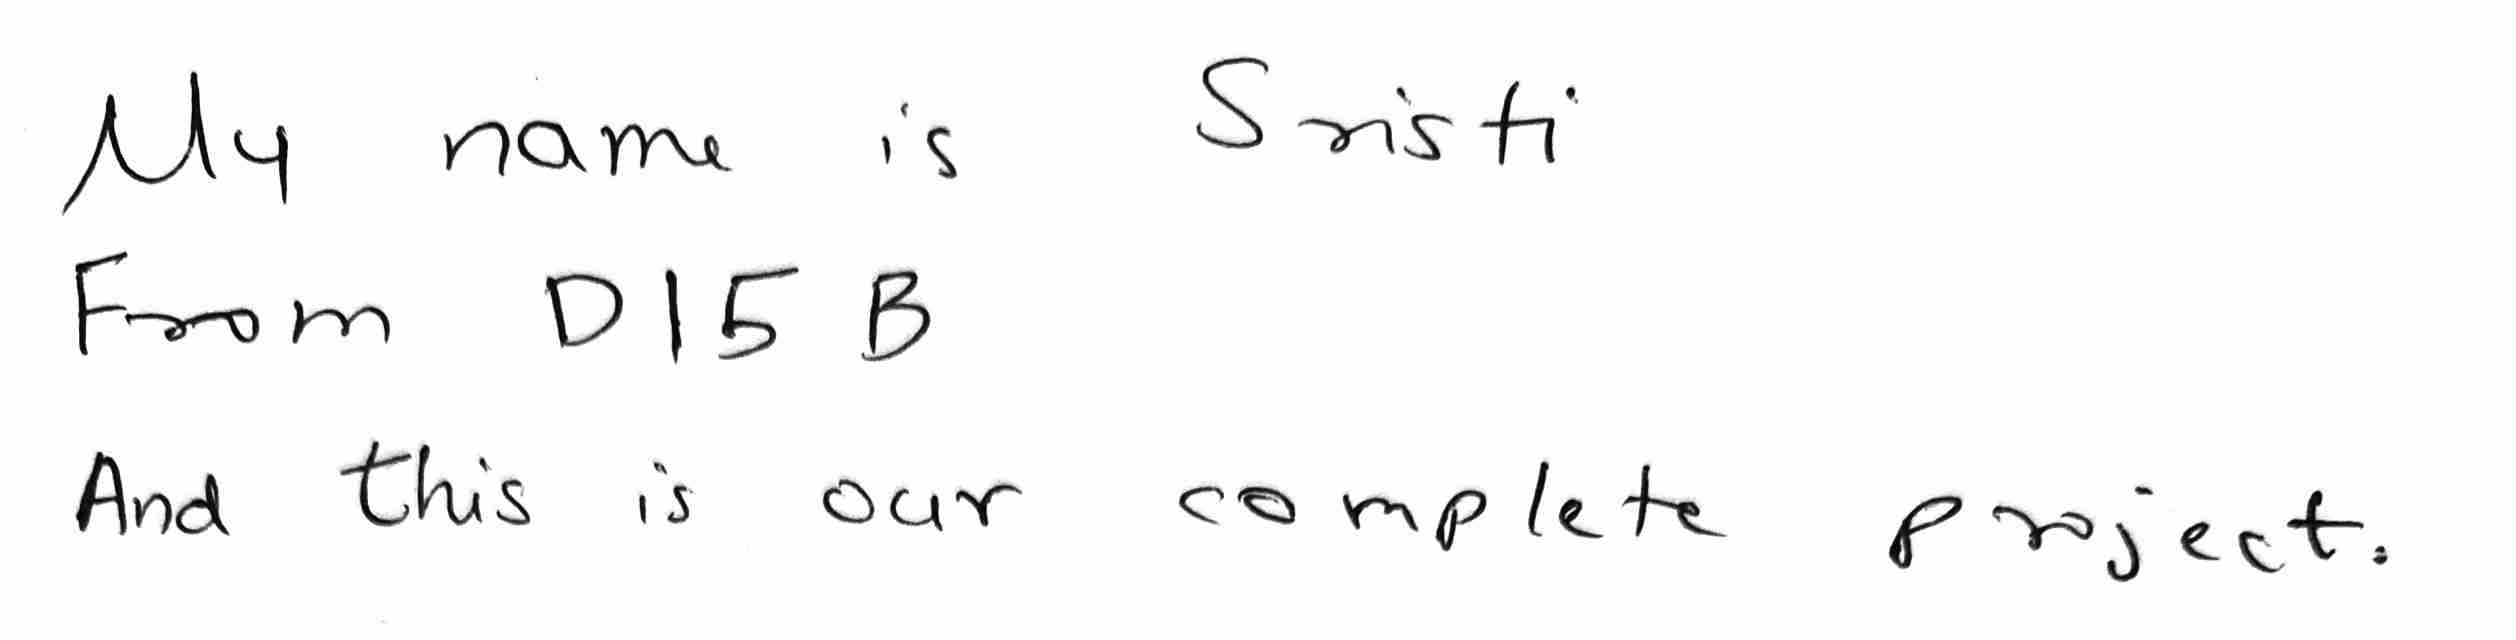 My name is Sristi
From D15 B
And this is our complete project.